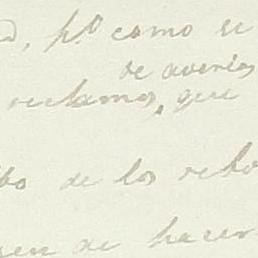 d, p.º como se
de averias
reclamos, que
de los
en de hacer